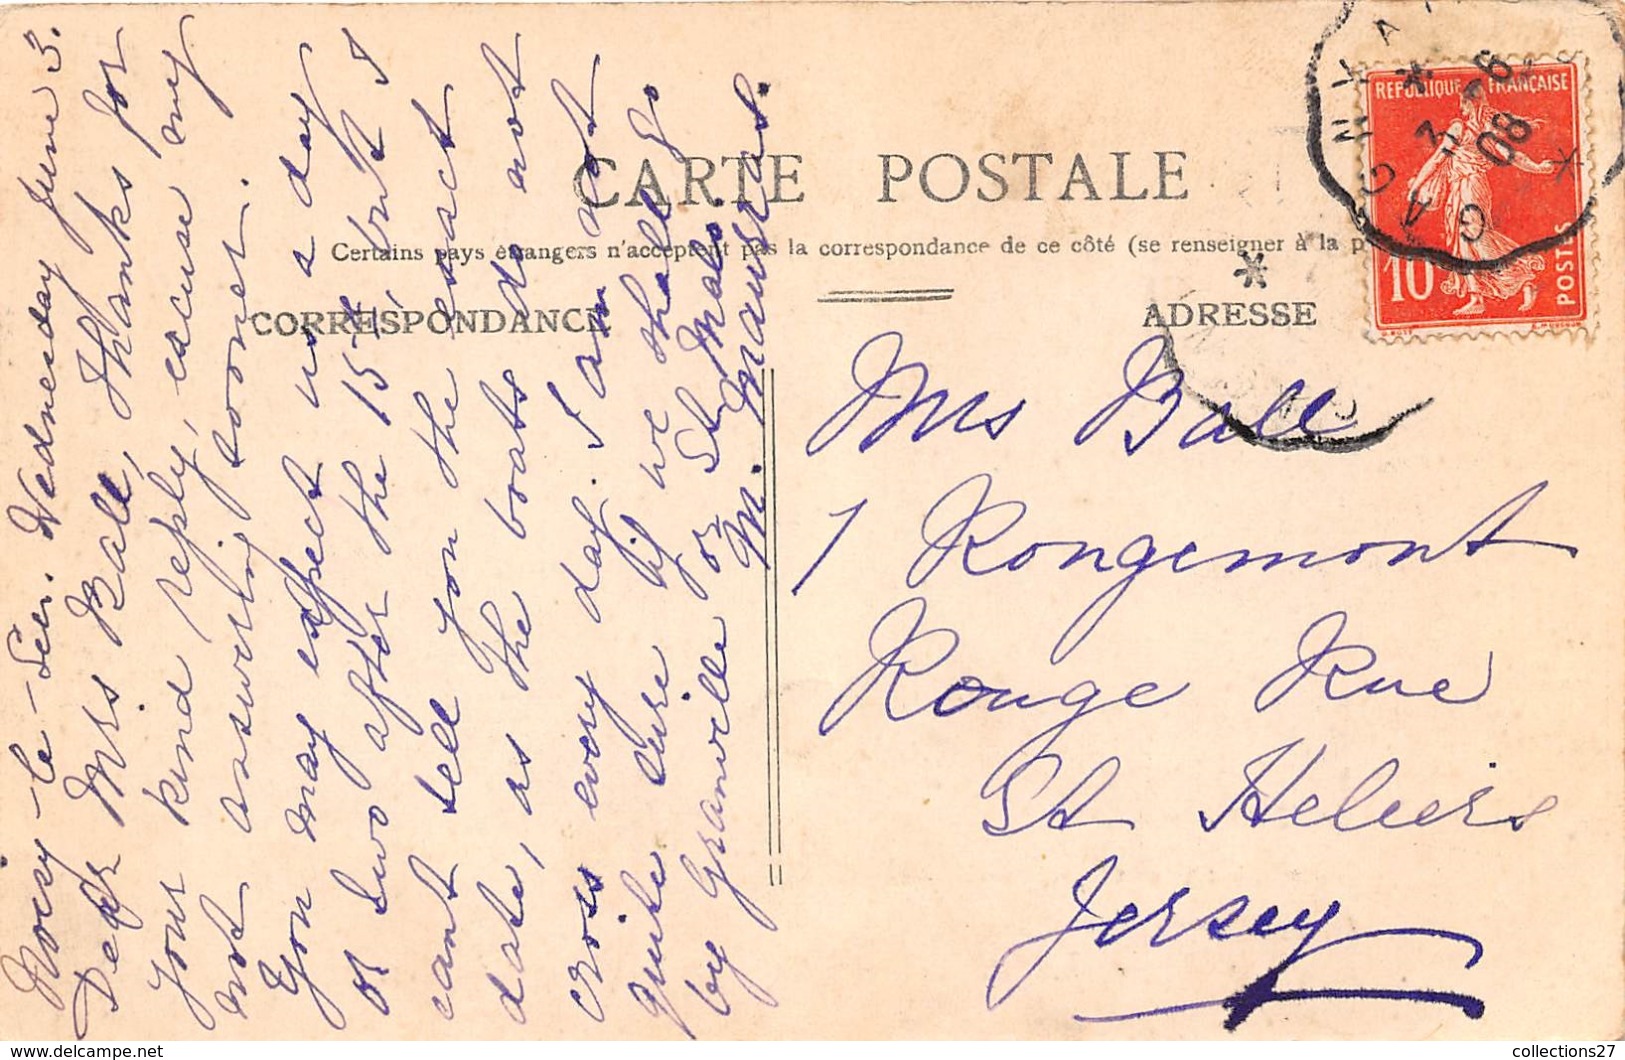 CARTE POSTALE
Certains pays étrangers n'acceptent pas la correspondance de ce côté (se renseigner à la p
CORRESPONDANCE
ADRESSE
REPUBLIQUE FRANÇAISE
10
POSTES
3 -6
08
GAGNY A
Noisy-le-Sec. Wednesday June 3.
Dear Mrs Ball, Thanks for
your kind reply, excuse my
not answering sooner.
You may expect us a day
or two after the 15th, but I
cant tell you the exact
date, as the boats do not
cross every day. I am not
quite sure if we shall go
by Granville or St Malo.
M. Maurras.
Mrs Ball
1 Rongemont
Rouge Rue
St Heliers
Jersey
collections27